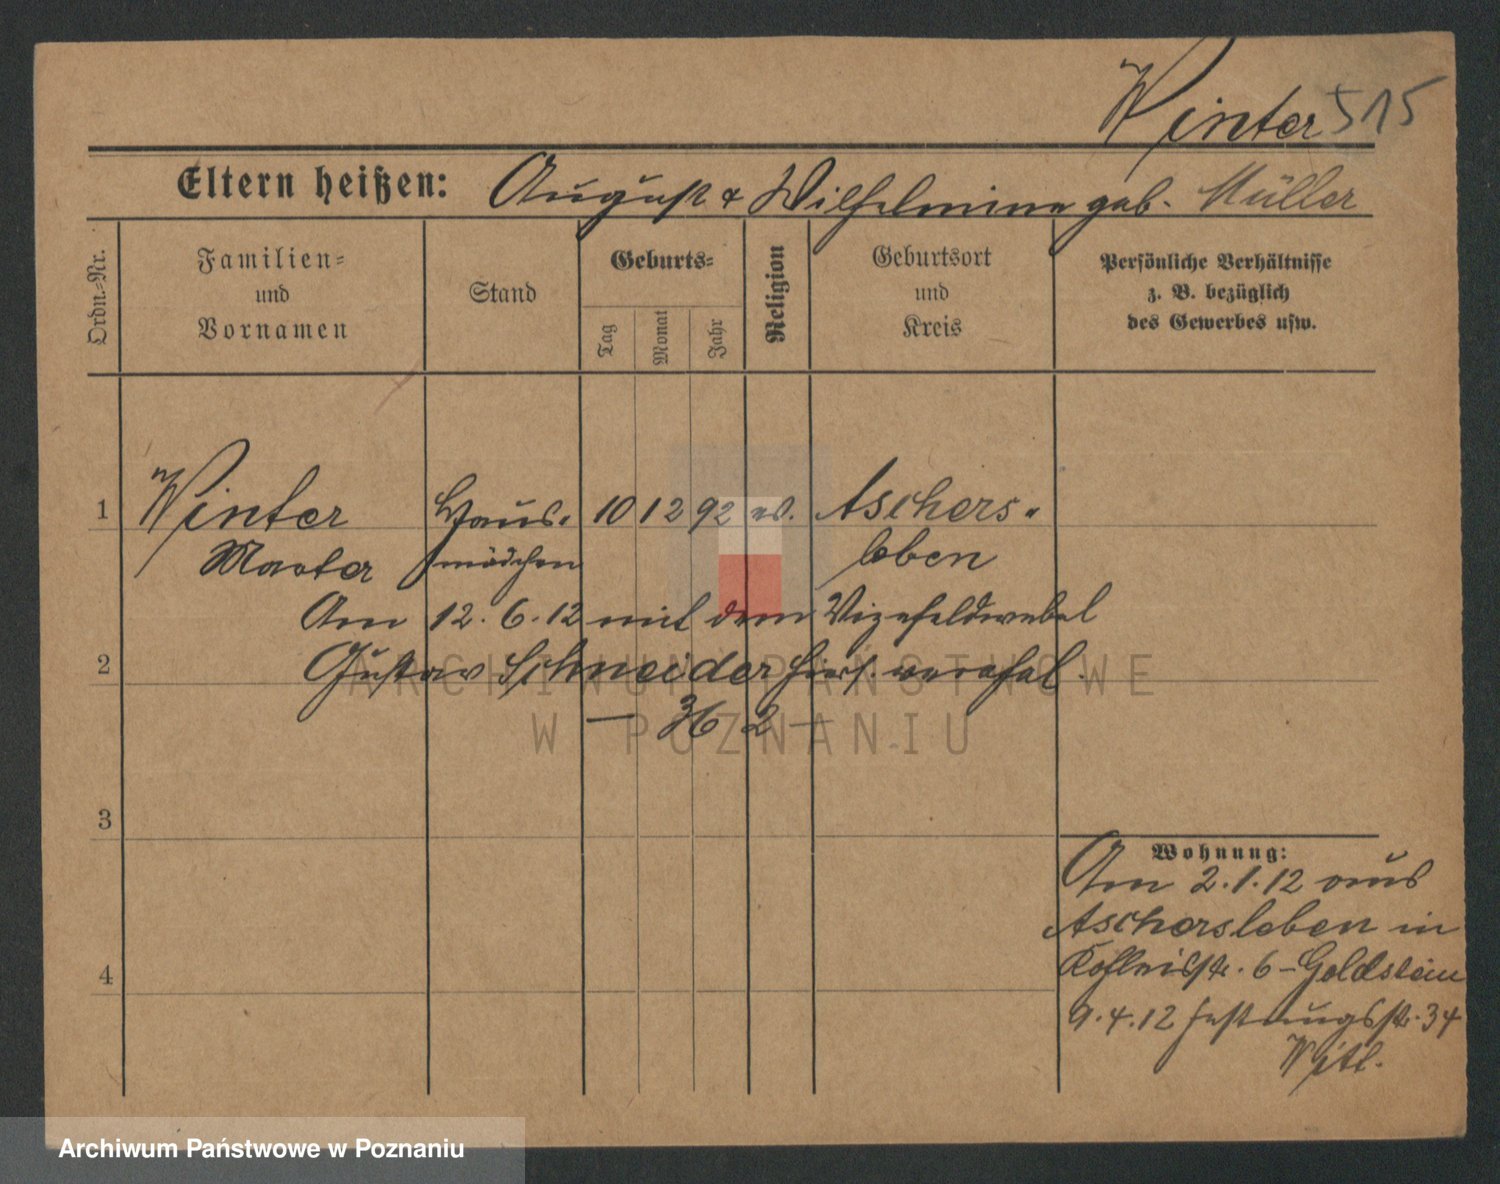 Winter 515
Eltern heißen: August & Wilhelmine geb. Müller
Ordn.-Nr.
Familien-
und
Vornamen
Stand
Geburts-
Tag
Monat
Jahr
Religion
Geburtsort
und
Kreis
Persönliche Verhältnisse
z. B. bezüglich
des Gewerbes usw.
1 Winter Haus- 10 12 92 ev. Aschers-
Marta mädchen leben
Am 12.6.12 mit dem Vizefeldwebel
2 Gustav Schneider hier verehel.
— 36 2 —
3
4
Wohnung:
Am 2.1.12 aus
Aschersleben in
6 - Goldstein
9.4.12 Festungsstr. 34
ARCHIWUM PAŃSTWOWE
W POZNANIU
Archiwum Państwowe w Poznaniu